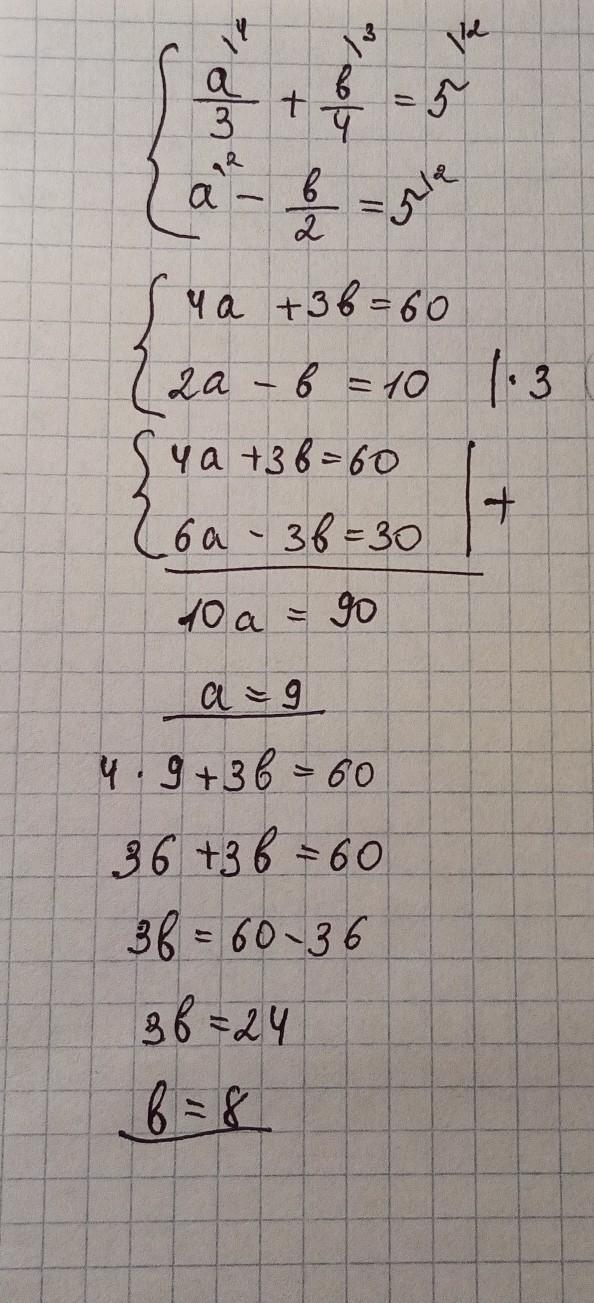 a\4/3 + b\3/4 = 5\12
a\2 - b/2 = 5\2
4a + 3b = 60
2a - b = 10 |· 3
4a + 3b = 60
6a - 3b = 30 | +
10a = 90
a = 9
4 · 9 + 3b = 60
36 + 3b = 60
3b = 60 - 36
3b = 24
b = 8